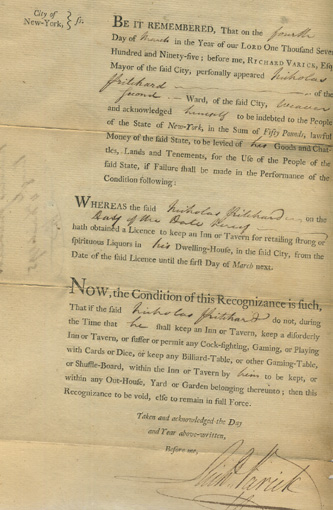 City of
New-York, } ss.
BE IT REMEMBERED, That on the fourth
Day of March in the Year of our LORD One Thousand Seven
Hundred and Ninety-five; before me, RYCHARD VARICK, Esq;
Mayor of the said City, personally appeared Nicholas
Pritchard of the
Second Ward, of the said City,
and acknowledged himself to be indebted to the People
of the State of New-York, in the Sum of Fifty Pounds, lawful
Money of the said State, to be levied of his Goods and Chat-
tles, Lands and Tenements, for the Use of the People of the
said State, if Failure shall be made in the Performance of the
Condition following:
WHEREAS the said Nicholas Pritchard on the
Day of the Date hereof
hath obtained a Licence to keep an Inn or Tavern for retailing strong or
spirituous Liquors in his Dwelling-House, in the said City, from the
Date of the said Licence until the first Day of March next.
NOW, the Condition of this Recognizance is such,
That if the said Nicholas Pritchard do not, during
the Time that he shall keep an Inn or Tavern, keep a disorderly
Inn or Tavern, or suffer or permit any Cock-fighting, Gaming, or Playing
with Cards or Dice, or keep any Billiard-Table, or other Gaming-Table,
or Shuffle-Board, within the Inn or Tavern by him to be kept, or
within any Out-House, Yard or Garden belonging thereunto; then this
Recognizance to be void, else to remain in full Force.
Taken and acknowledged the Day
and Year above-written,
Before me,
Richd. Varick